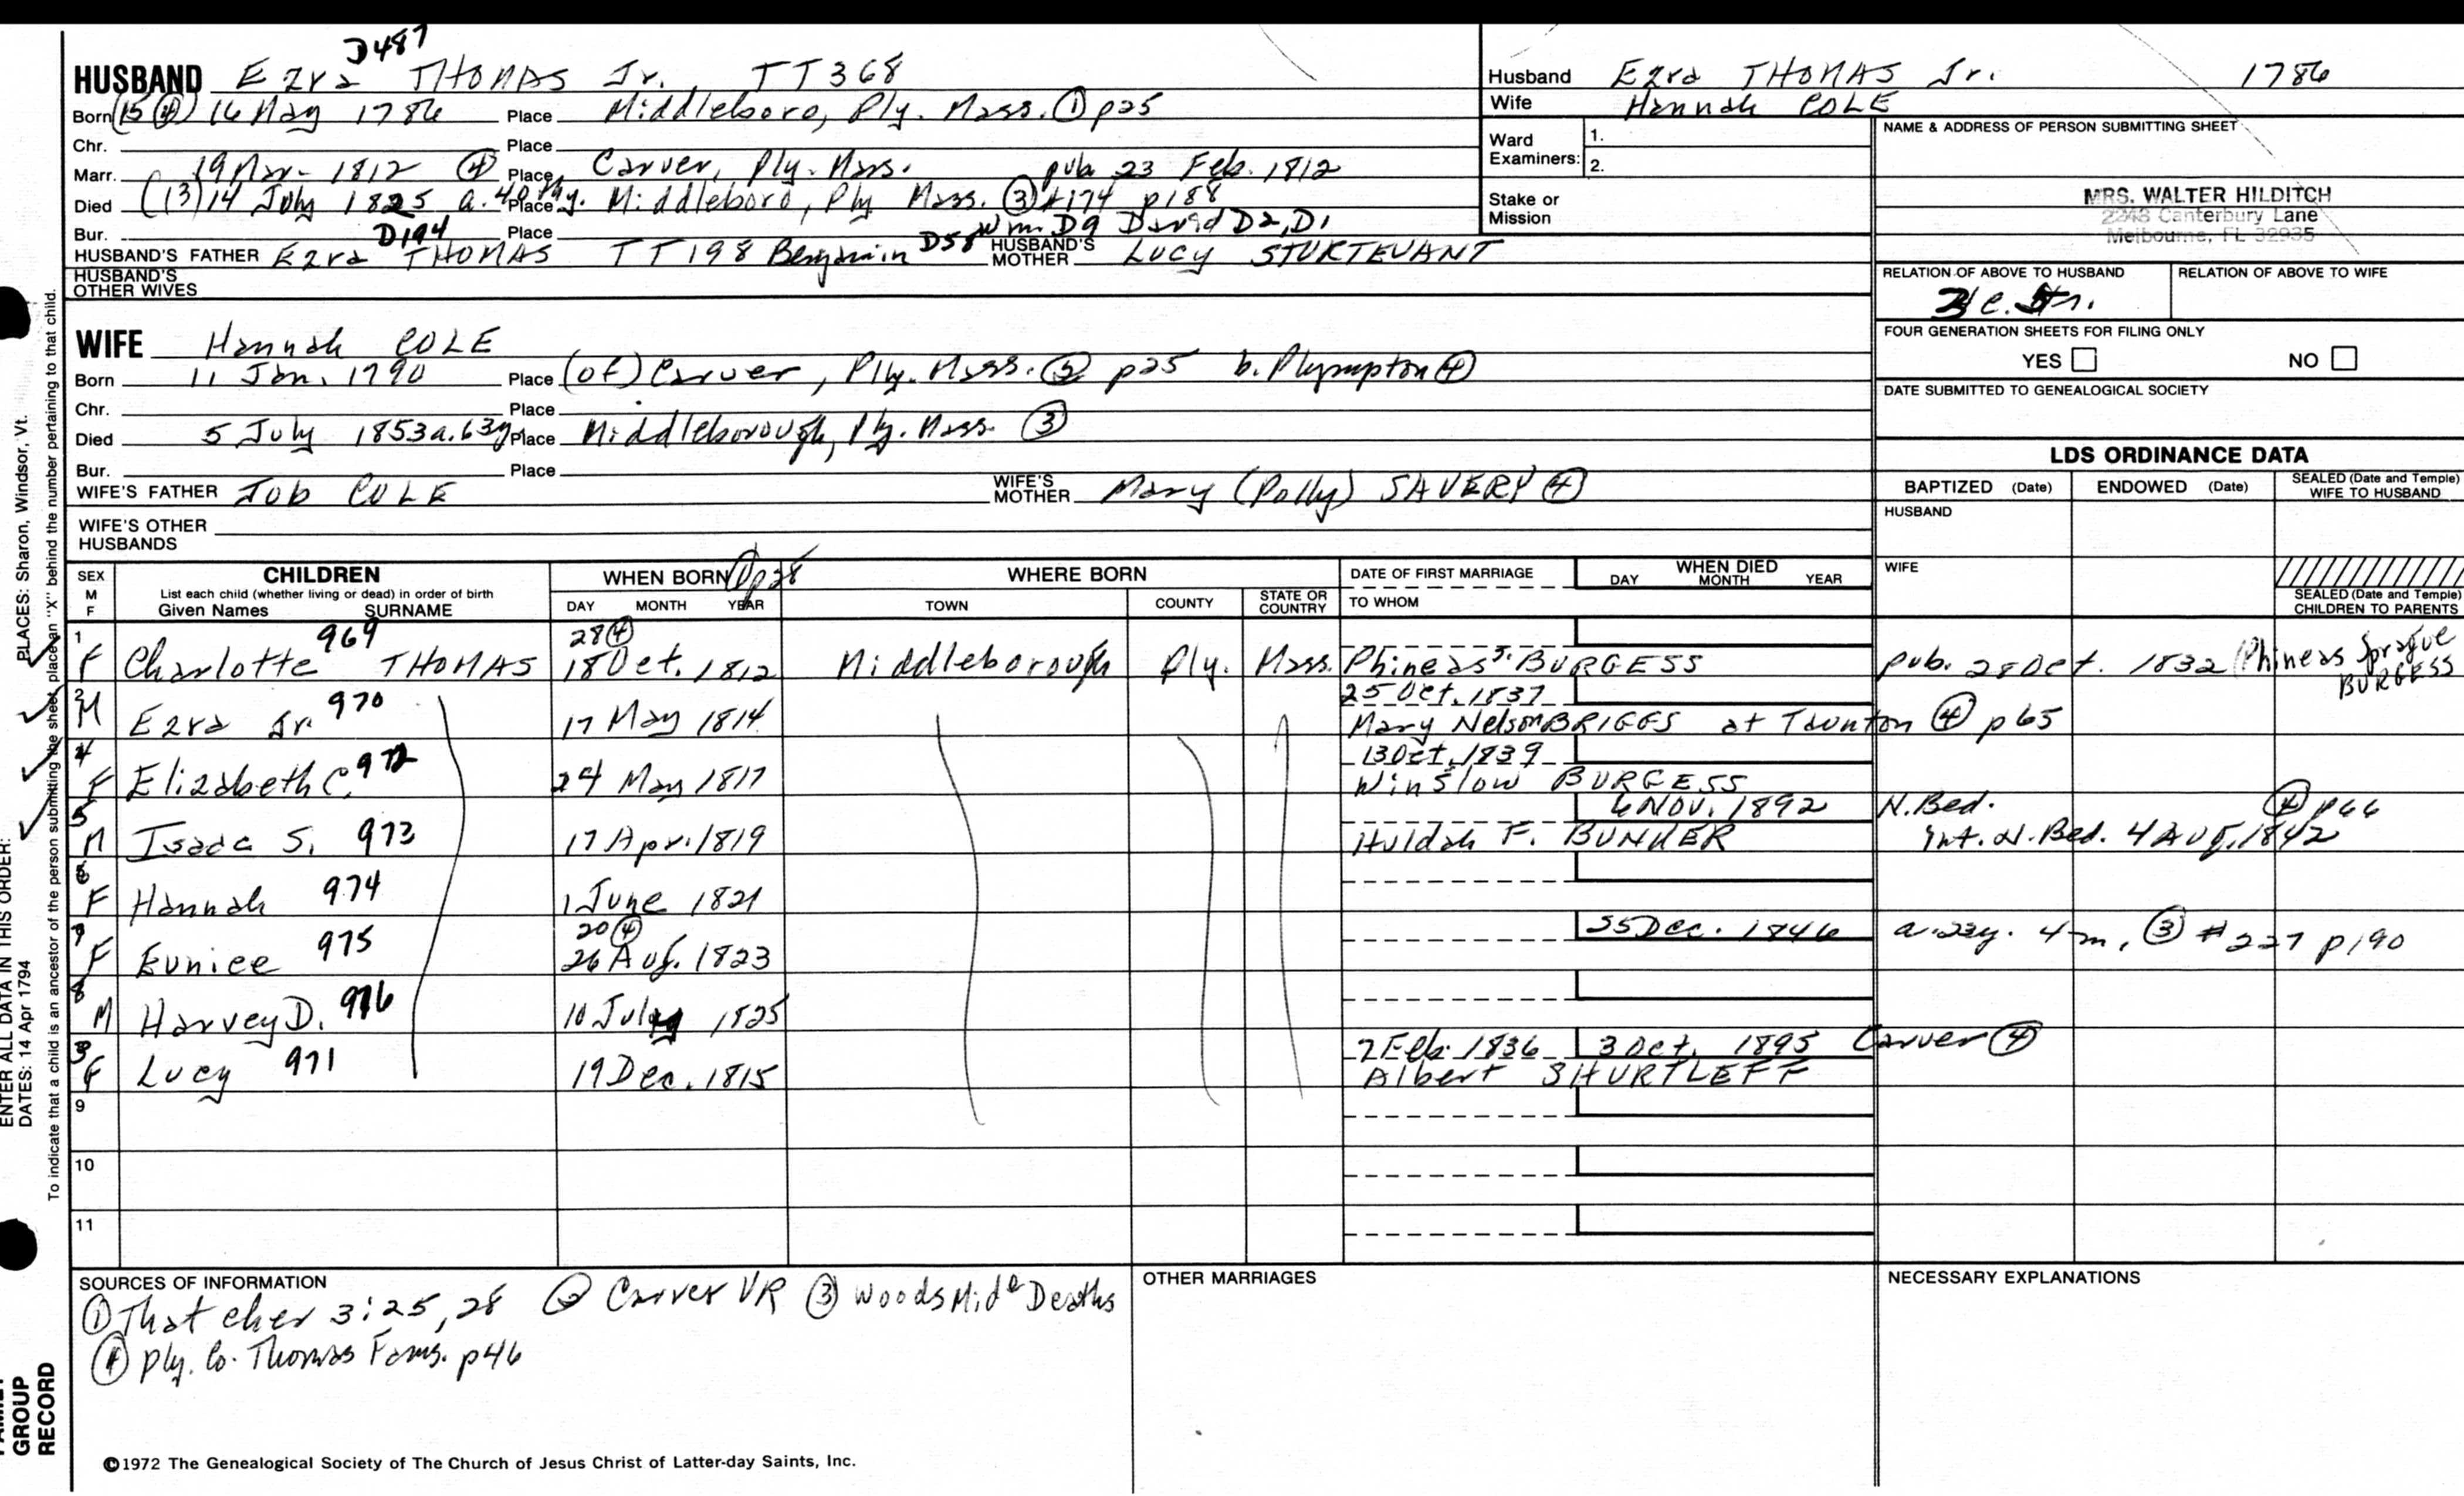 D487
HUSBAND Ezra THOMAS Jr., TT368
Born (15 ④) 16 May 1786 Place Middleboro, Ply. Mass. ① p25
Chr. Place
Marr. 19 Mar. 1812 ④ Place Carver, Ply. Mass. pub. 23 Feb. 1812
Died (13) 14 July 1825 a. 40 y. Place Middleboro, Ply Mass. ③ #174 p188
Bur. Place
D194 D58 Wm D9 David D2, D1
HUSBAND'S FATHER Ezra THOMAS TT198 Benjamin HUSBAND'S MOTHER Lucy STURTEVANT
HUSBAND'S OTHER WIVES
WIFE Hannah COLE
Born 11 Jan. 1790 Place (of) Carver, Ply. Mass. ② p25 b. Plympton ④
Chr. Place
Died 5 July 1853 a. 63y Place Middleborough, Ply. Mass. ③
Bur. Place
WIFE'S FATHER Job COLE WIFE'S MOTHER Mary (Polly) SAVERY ④
WIFE'S OTHER HUSBANDS
Husband Ezra THOMAS Jr. 1786
Wife Hannah COLE
Ward Examiners: 1.
2.
Stake or Mission
NAME & ADDRESS OF PERSON SUBMITTING SHEET
MRS. WALTER HILDITCH
2243 Canterbury Lane
Melbourne, FL 32935
RELATION OF ABOVE TO HUSBAND RELATION OF ABOVE TO WIFE
FOUR GENERATION SHEETS FOR FILING ONLY
YES NO
DATE SUBMITTED TO GENEALOGICAL SOCIETY
LDS ORDINANCE DATA
BAPTIZED (Date) ENDOWED (Date) SEALED (Date and Temple) WIFE TO HUSBAND
HUSBAND
WIFE
SEALED (Date and Temple) CHILDREN TO PARENTS
SEX M F CHILDREN WHEN BORN ① p28 WHERE BORN DATE OF FIRST MARRIAGE WHEN DIED
List each child (whether living or dead) in order of birth
Given Names SURNAME DAY MONTH YEAR TOWN COUNTY STATE OR COUNTRY TO WHOM DAY MONTH YEAR
969 28 ④
1 F Charlotte THOMAS 18 Oct. 1812 Middleborough Ply. Mass. Phineas S. BURGESS pub. 28 Oct. 1832 (Phineas Sprague BURGESS
25 Oct. 1837
2 M Ezra Jr. 970 17 May 1814 Mary Nelson BRIGGS at Taunton ④ p65
13 Oct. 1839
4 F Elizabeth C. 972 24 May 1817 Winslow BURGESS
6 Nov. 1892 N. Bed. ④ p66
5 M Isaac S. 973 17 Apr. 1819 Huldah F. BUNKER Int. N. Bed. 4 Aug. 1842
6 F Hannah 974 1 June 1821
20 ④ 25 Dec. 1846 a. 23y. 4m, ③ #227 p190
7 F Eunice 975 26 Aug. 1823
8 M Harvey D. 976 10 July 1825
2 Feb. 1836 3 Oct. 1895 Carver ④
3 F Lucy 971 19 Dec. 1815 Albert SHURTLEFF
9
10
11
SOURCES OF INFORMATION OTHER MARRIAGES NECESSARY EXPLANATIONS
① Thatcher 3:25, 28 ② Carver VR ③ Woods Mide Deaths
④ Ply. Co. Thomas Fams. p46
©1972 The Genealogical Society of The Church of Jesus Christ of Latter-day Saints, Inc.
ENTER ALL DATA IN THIS ORDER:
DATES: 14 Apr 1794
PLACES: Sharon, Windsor, Vt.
To indicate that a child is an ancestor of the person submitting the sheet, place an "X" behind the number pertaining to that child.
GROUP
RECORD